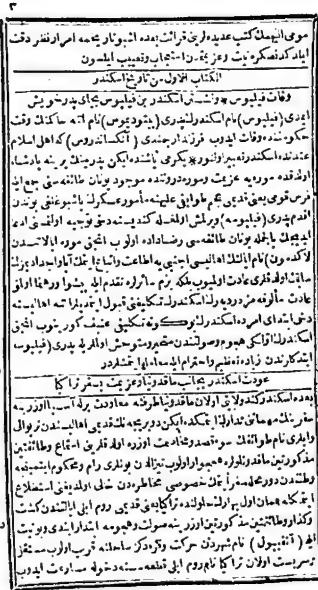 ٣
مومى اليهمك كتب عديده لرنى قرائت بعده اشبو تاريخمه امرار نظر دقت
ايلد كدنصكره ثبات وعزيمتدن استعجاب وتعييب ايلسون
الكتاب الاول من تاريخ اسكندر
وفات فيليپوس ونشستن اسكندر بن فيليپوس بجاى پدر خويش
ايمدى (فيليپوس) نام اسكندر لنپدرى نام اته حاكمك وقت
حكومتنده وفات ايدوب فرزند ارجمندى كه اهل اسلام
عندنده اسكندر تعبير اولنور يكرمى ياشنده ايكن پدرينك يرينه پادشاه
اولدقده موره يه عزيمت وموره درونده موجود يونان طائفه سنى جمع ايله
فرس قومى يعنى قديمى عجم طوايفى عليهنه مأمور عسكرلر باشبوغلغى بوندن
اقدم پدرى (فيليپوسه) ويرلمش اولمغله كندينه دخى توجيه اولنمسنى ادعا
ايديجك بالجمله يونان طائفه سى رضاداده اولوب انجق موره ايالتندن
نام ايالتك اهاليسى اجنبى يه اطاعت واتباع ايتمك آبا واجداد مزدن
عادت اولميوب بلكه بزم سائره تقدم ايله پيشوا
عادت مألوفه مزدر ديو اسكندرك تكليفنى قبول ايتمديلر اته اهاليسنه
دخى ابتداى امرده اسكندرك بو كونه تكليفى عنيف كورينوب انجق
اسكندرك اولكى هجوم وصولتندن متحير ومتوحش اولدقلرندن پدرى (فيليپوسه
ايتدكلرندن زياده تعظيم واحترام ايله معامله ايتمشلردر
عودت اسكندر بجانب ماقدونيا وعزيمت بسفر تراكيا
بعده اسكندر كندو ولايتى اولان ماقدونيا طرفنه معاودت برله آسيا اوزرينه
سفرينك مهماتنى تدارك ايتمكده ايكن دوربجه نك قديمى اهاليسندن تريوالى
وايلرى نام طوائفك سوء قصد ومخادعت اوزره اولدقلرين استماع وطائفتين
مذكورتين ماقدونيالولره همجوار اولوب بونلرى رام ومحكوم ايتمينجه
وطندن دور محله سفر ايتمك خصوصى مخاطره دن خالى اولمديغنى استطلاع
ايتمكله همان اول بهار حلولنده تراكيا يعنى قديمى روم ايلى ايالتندن كشت
وكذار وطائفتين مذكورتين اوزرينه صولت وهجومه ابتدار ايتدى
(آنفيپول) نام شهردن حركت ساحلنه قريب اولوب مستقل
وسربست اولان تراكيا نام روم ايلى قطعه سنه دخوله مسارعت ايدوب